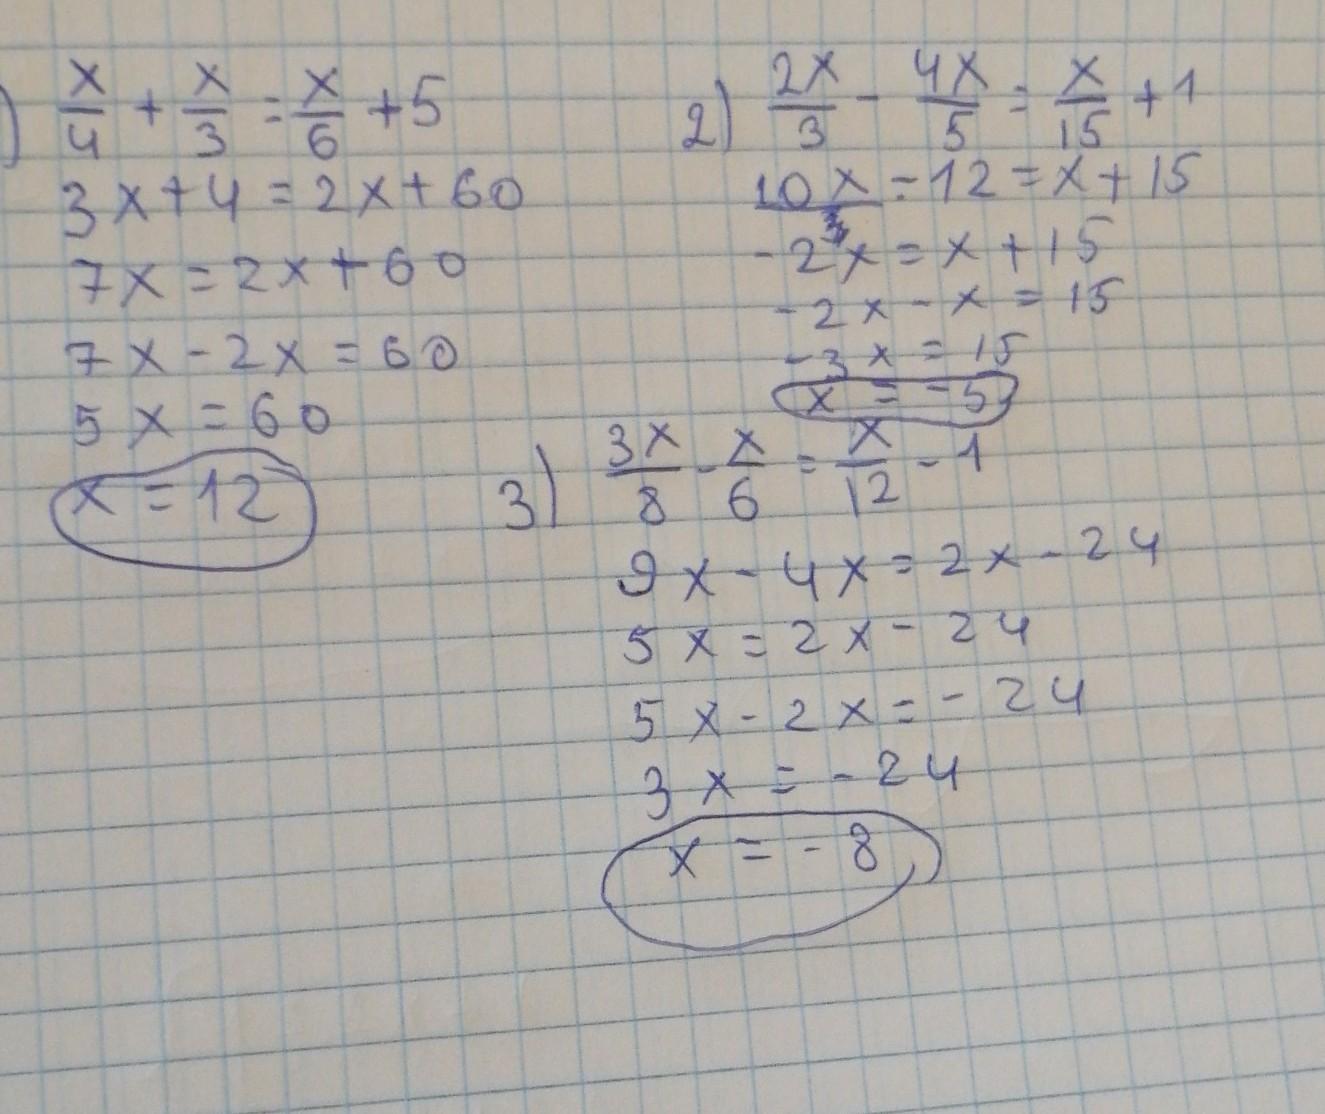 ) x/4 + x/3 = x/6 + 5
3x + 4 = 2x + 60
7x = 2x + 60
7x - 2x = 60
5x = 60
x = 12
2) 2x/3 - 4x/5 = x/15 + 1
10x - 12 = x + 15
-2x = x + 15
-2x - x = 15
-3x = 15
x = -5
3) 3x/8 - x/6 = x/12 - 1
9x - 4x = 2x - 24
5x = 2x - 24
5x - 2x = -24
3x = -24
x = -8